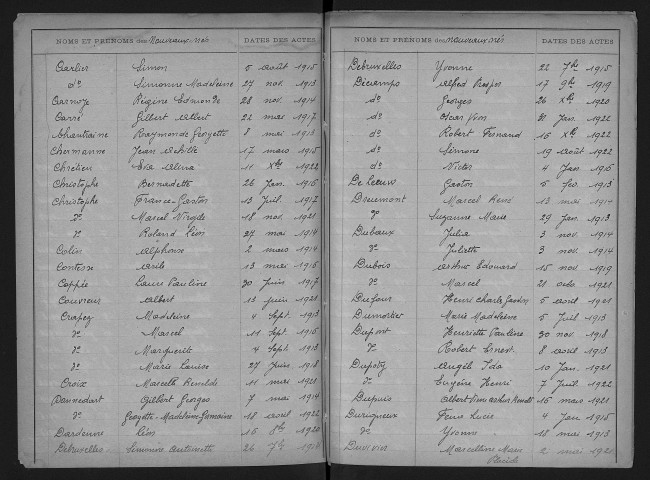 NOMS ET PRÉNOMS des Nouveaux nés DATES DES ACTES
Carlier Simon 5 août 1915
do Simonne Madeleine 27 nov. 1913
Carnoye Régine Edmonde 28 nov. 1914
Carré Gilbert Albert 22 mai 1917
Chantraine Raymonde Georgette 8 mai 1913
Chermanne Jean Achille 17 mars 1915
Chrétien Eva Alina 11 Xbre 1922
Christophe Bernadette 26 Jan. 1916
Christophe France-Gaston 13 Juil. 1917
do Marcel Virgile 18 nov. 1921
do Roland Léon 24 mai 1914
Colin Alphonse 2 mars 1914
Contesse 13 mai 1916
Coppée Laure Pauline 30 Juin 1917
Couvreur Albert 13 juin 1921
Crapez Madeleine 4 Sept. 1913
do Marcel 11 Sept. 1915
do Marguerite 4 Sept. 1913
do Marie Louise 27 Juin 1918
Croix Marcelle Renelde 11 mai 1921
Gilbert Georges 7 mai 1914
do Georgette-Madeleine-Germaine 18 août 1922
Dardenne Léon 16 8bre 1920
Debruxelles Simonne Antoinette 26 7bre 1918
NOMS ET PRÉNOMS des nouveaux nés DATES DES ACTES
Debruxelles Yvonne 22 7bre 1915
Décamps Alfred 17 9bre 1919
do Georges 26 Xbre 1920
do Oscar 31 Jan. 1922
do Robert Fernand 16 Xbre 1922
do Simone 19 août 1922
do Victor 4 Jan. 1915
De Leeuw Gaston 5 fév. 1913
Dreumont Marcel René 13 mai 1914
do Suzanne Marie 29 Jan. 1913
Dubaux Julia 3 nov. 1914
do Juliette 3 nov. 1914
Dubois Arthur Edouard 15 nov. 1919
do Marcel 21 octo. 1921
Dufour Henri Charle Gaston 5 août 1921
Dumortier Marie Madeleine 5 Juil 1913
Dupont Henriette Pauline 30 nov. 1918
do Robert Ernest 8 avril 1913
Angèl Ida 10 Jan. 1921
do Eugène Henri 7 Juil. 1922
Dupuis Albert 16 mars 1921
Lucie 4 Jan. 1915
do Yvonne 18 mai 1913
Marcelline Marie 2 mai 1921
Placide